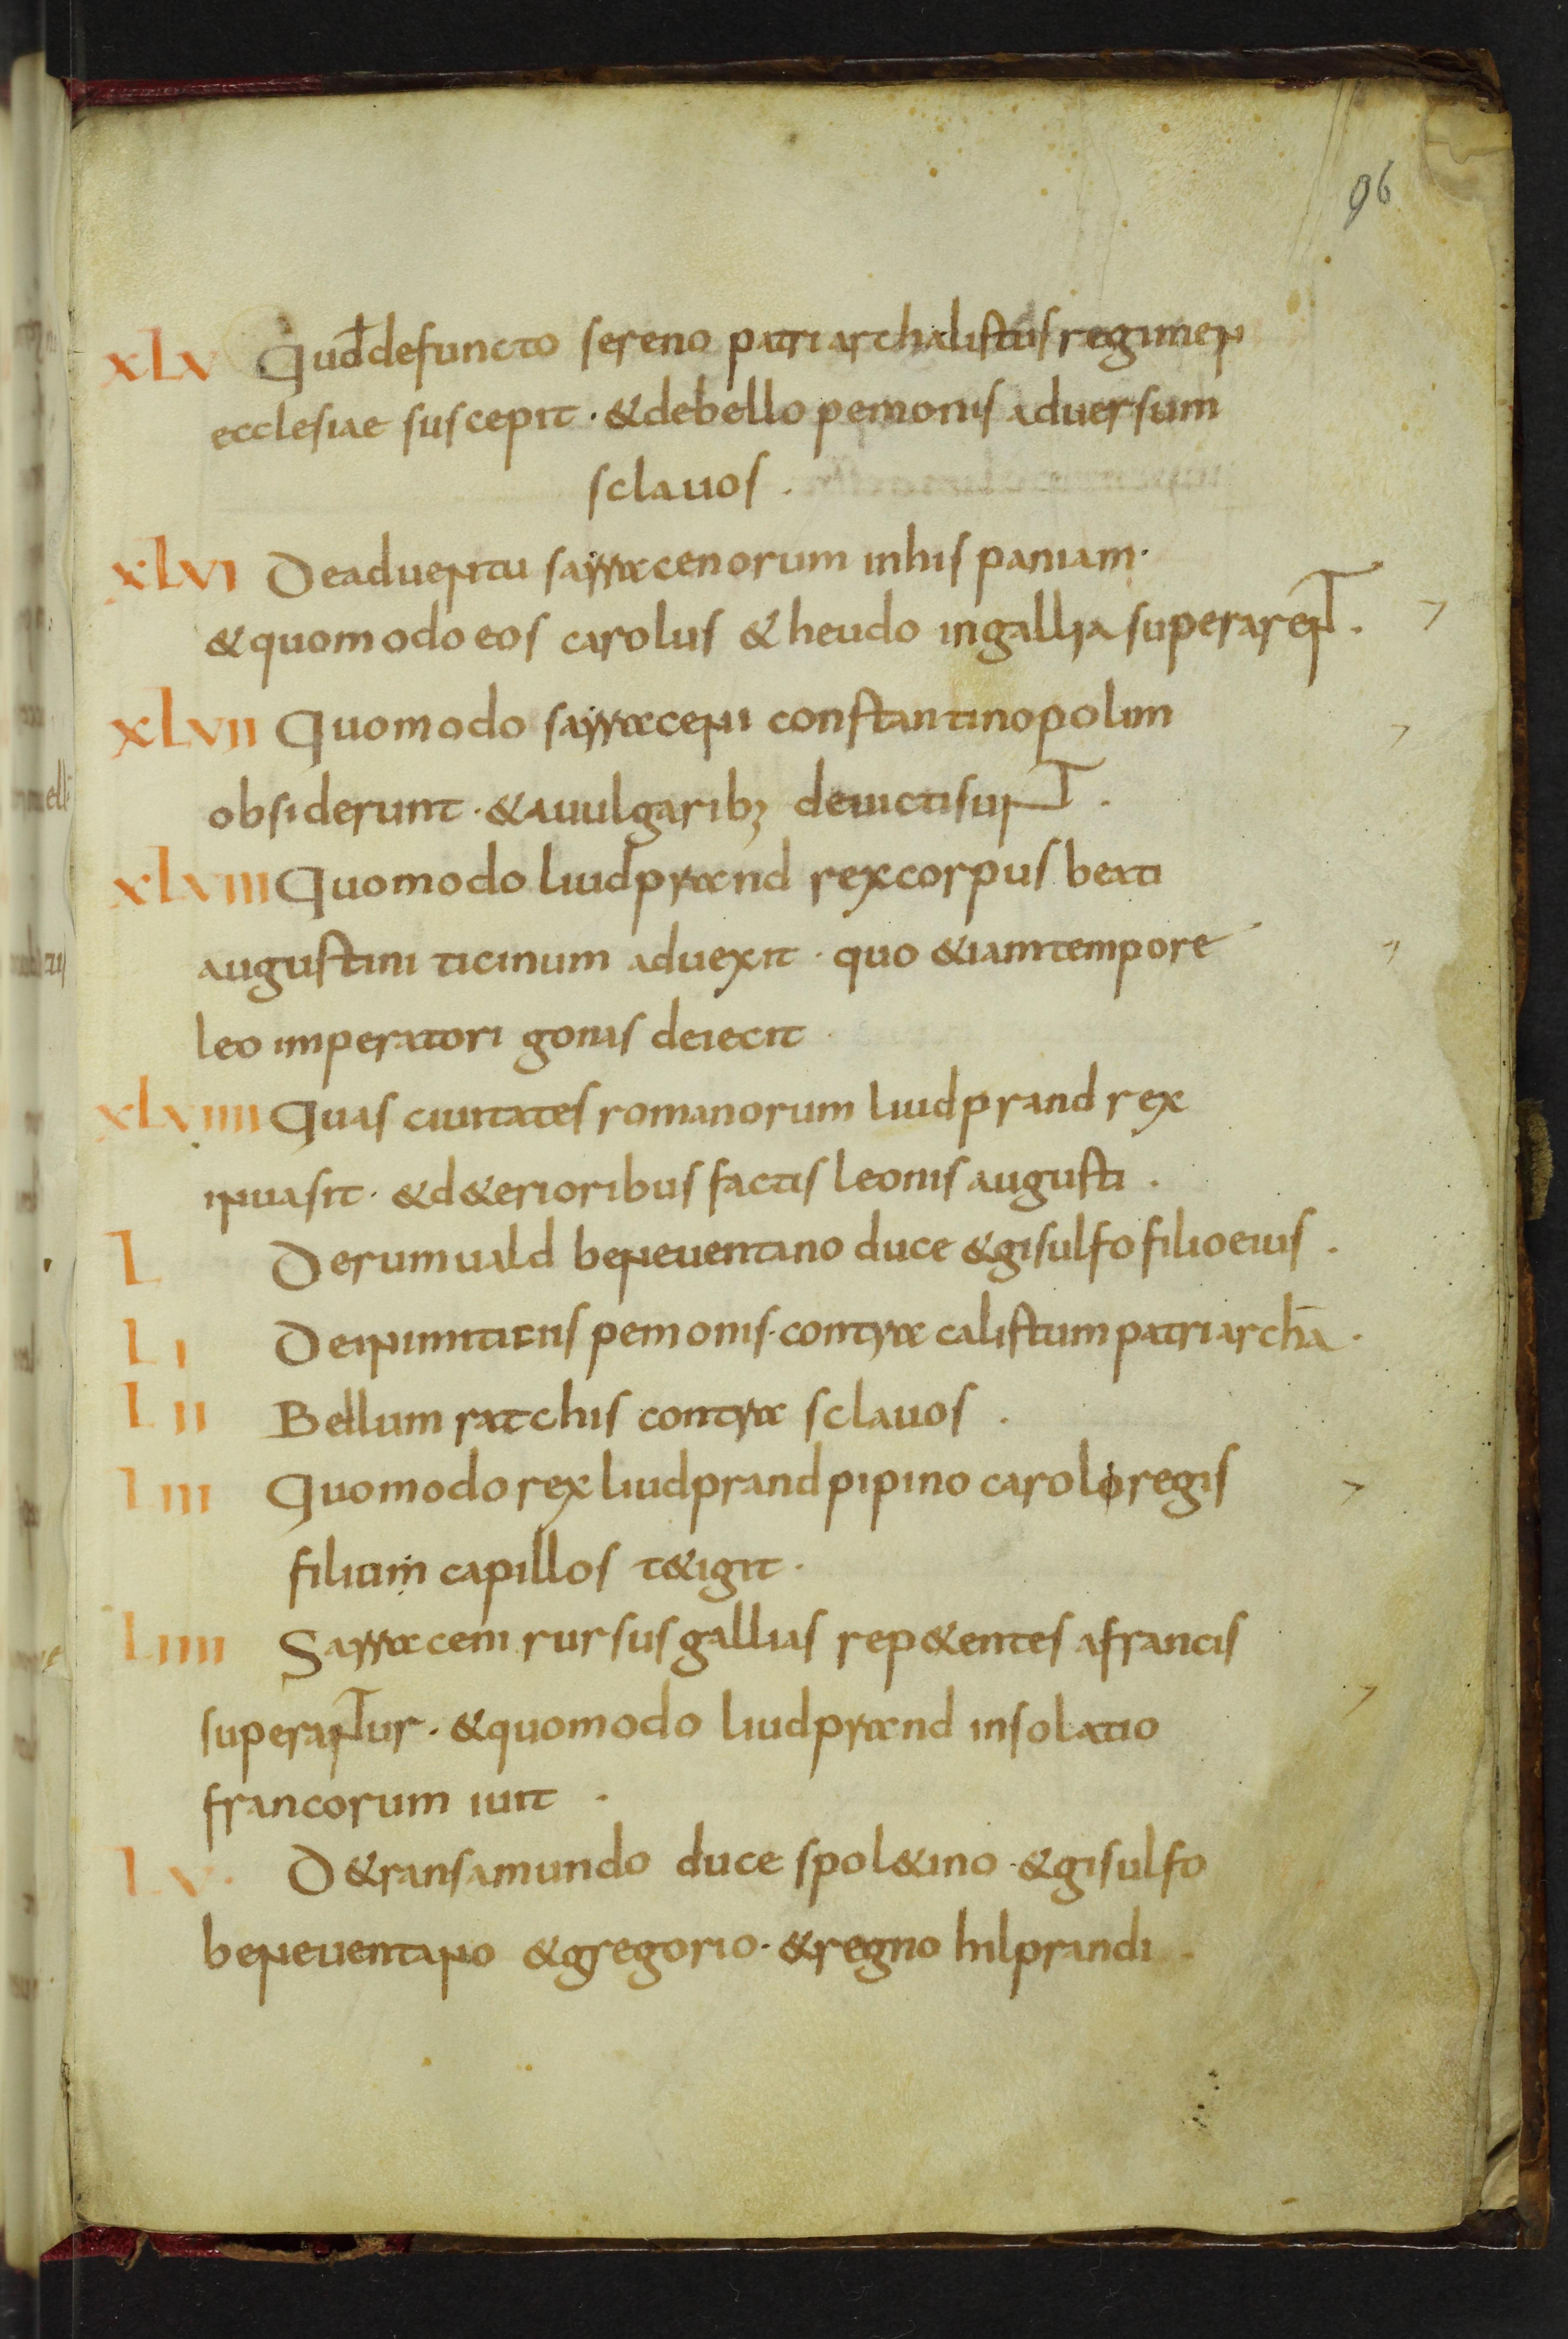 96
XLV Quod defuncto sereno patriarchalistus regimen
ecclesiae suscepit · & debello pemonis aduersum
sclauos .
XLVI De aduentu sarracenorum inhispaniam ·
& quomodo eos carolus & heudo ingallia superarent .
XLVII Quomodo sarraceni constantinopolim
obsiderunt · & auulgarib; deuicti sunt .
XLVIII Quomodo liudprand rex corpus beati
augustini ticinum aduexit · quo &iam tempore
leo imperatori gonis deiecit
XLVIIII Quas ciuitates romanorum liudprand rex
inuasit · & d&erioribus factis leonis augusti .
L De rumuald beneuentano duce & gisulfo filio eius .
LI De inimiticiis pemonis · contra calistum patriarchā .
LII Bellum ratchis contra sclauos .
LIII Quomodo rex liudprand pipino carolo regis
filium capillos t&igit ·
LIIII Sarraceni rursus gallias rep&entes afrancis
superantur · & quomodo liudprand insolatio
francorum iuit .
LV · D&ransamundo duce spol&ino · & gisulfo
beneuentano & gregorio · & regno hilprandi .